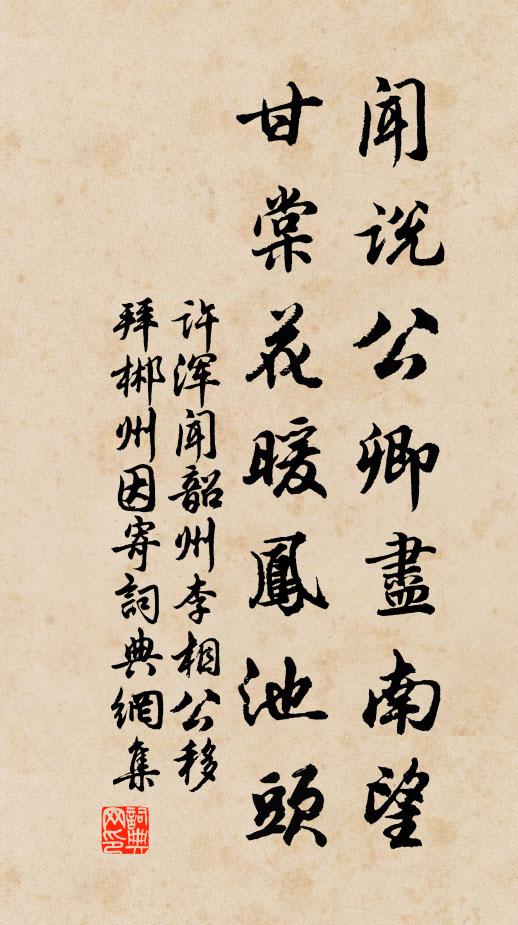 闻说公卿盡南望
甘棠花暖鳳池頭
许浑闻韶州李相公移
拜郴州因寄詞典網集
詞典网印